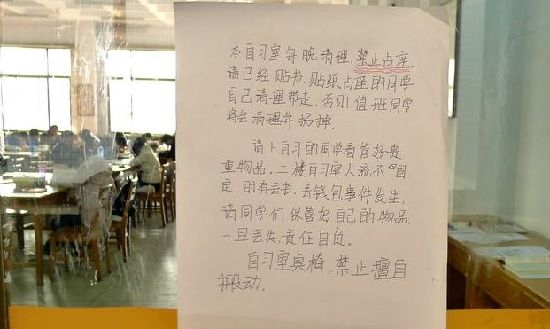 本自习室每晚清理,禁止占座.
请已经贴书,贴纸占座的同学
自己清理带走,否则值班同学
将会清理并扔掉.
请上自习的同学看管好贵
重物品.二楼自习室人流不固
定 时有丢书、丢钱包事件发生,
请同学们保管好自己的物品
一旦丢失,责任自负.
自习室桌椅,禁止擅自
搬动.